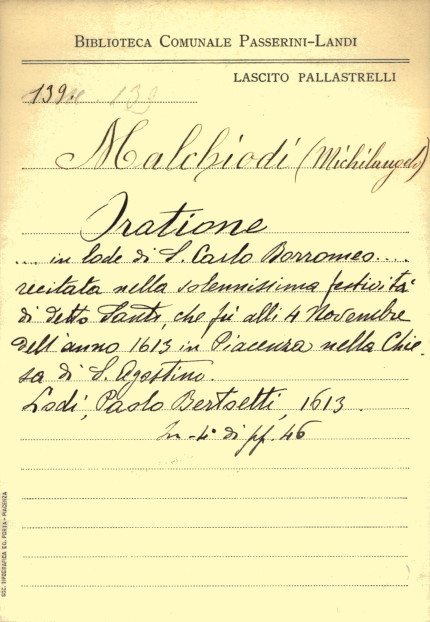 BIBLIOTECA COMUNALE PASSERINI-LANDI
LASCITO PALLASTRELLI
139. 139
Malchiodi (Michelangelo)
Oratione
.... in lode di S. Carlo Borromeo....
recitata nella solennissima festività
di detto Santo, che fù alli 4 Novembre
dell'anno 1613 in Piacenza nella Chie-
sa di S. Agostino.
Lodi, Paolo Bertoetti, 1613.
In-4° di pp. 46
SOC. TIPOGRAFICA ED. PORTA-PIACENZA